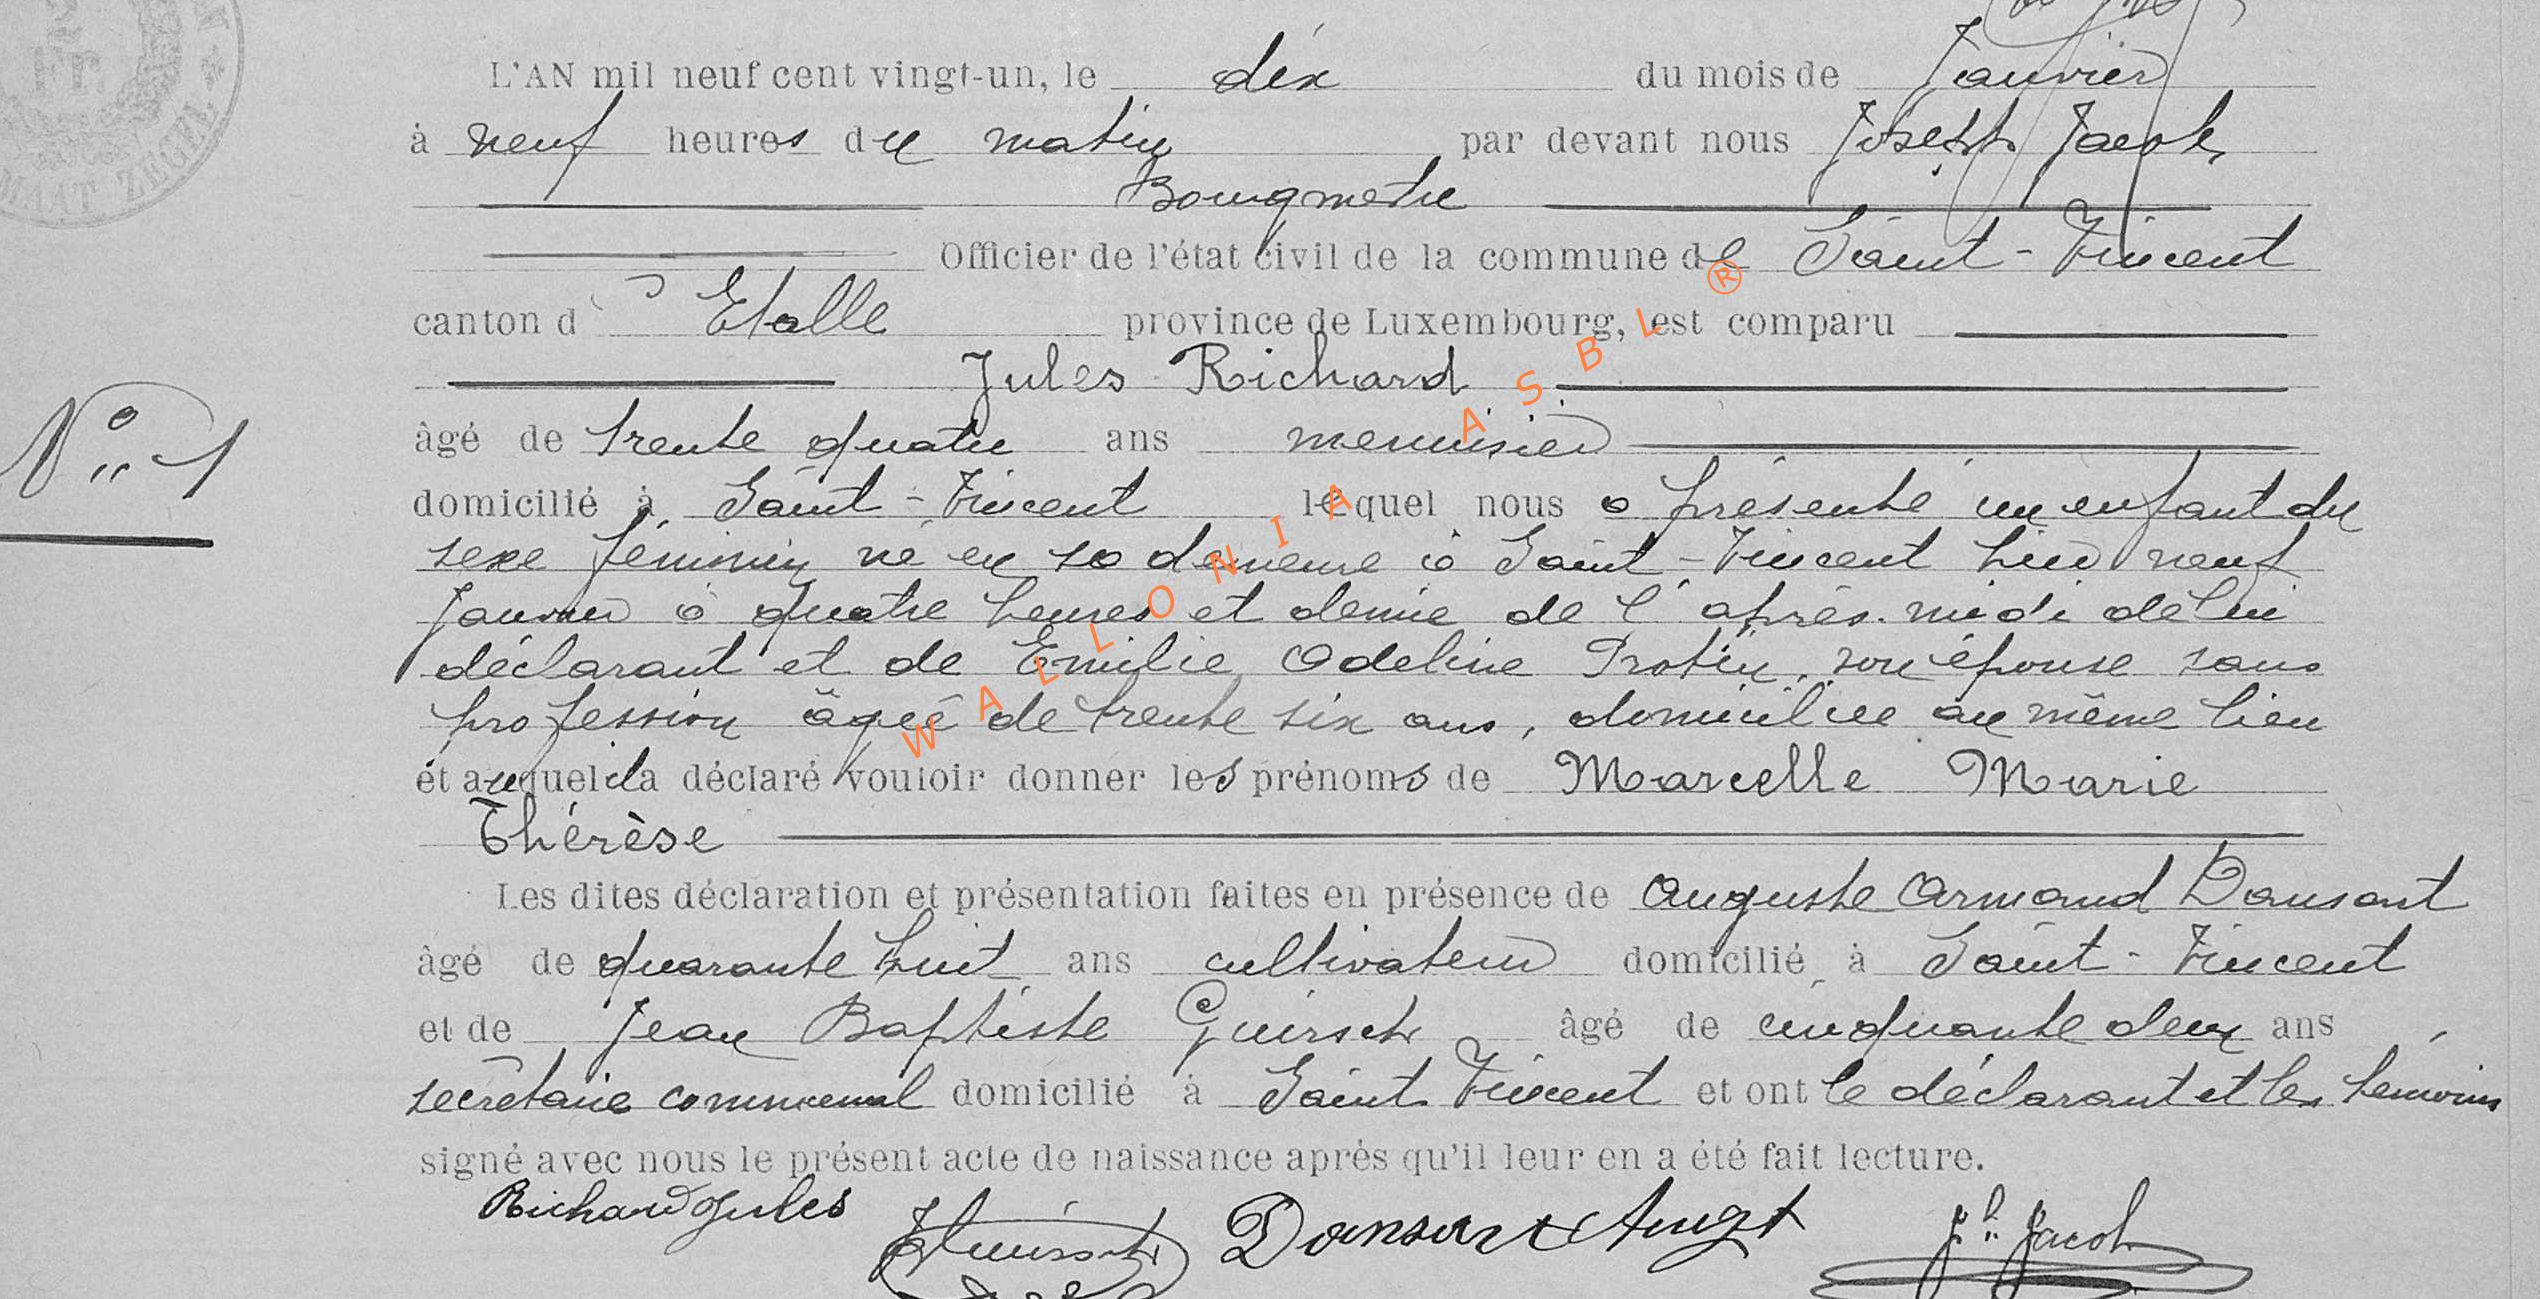 L'AN mil neuf cent vingt-un, le dix du mois de Janvier
à neuf heures du matin par devant nous Joseph Jacob
Bourgmestre
Officier de l'état civil de la commune de Saint-Vincent
canton d'Etalle province de Luxembourg, est comparu
Jules Richard
N° 1
âgé de trente quatre ans menuisier
domicilié à Saint-Vincent lequel nous a présenté un enfant du
sexe féminin né en sa demeure à Saint-Vincent hier neuf
Janvier à quatre heures et demie de l'après-midi de lui
déclarant et de Emilie Adeline Protin, son épouse sans
profession âgée de trente six ans, domiciliée au même lieu
et auquel il a déclaré vouloir donner les prénoms de Marcelle Marie
Thérèse
Les dites déclaration et présentation faites en présence de Auguste Armand Dansart
âgé de quarante huit ans cultivateur domicilié à Saint-Vincent
et de Jean Baptiste Guirsch âgé de cinquante deux ans
secrétaire communal domicilié à Saint-Vincent et ont le déclarant et les témoins
signé avec nous le présent acte de naissance après qu'il leur en a été fait lecture.
Richard Jules Guirsch Dansart Augt Jh Jacob
MAAT ZEGEL
Fr.
WALLONIA ASBL ®